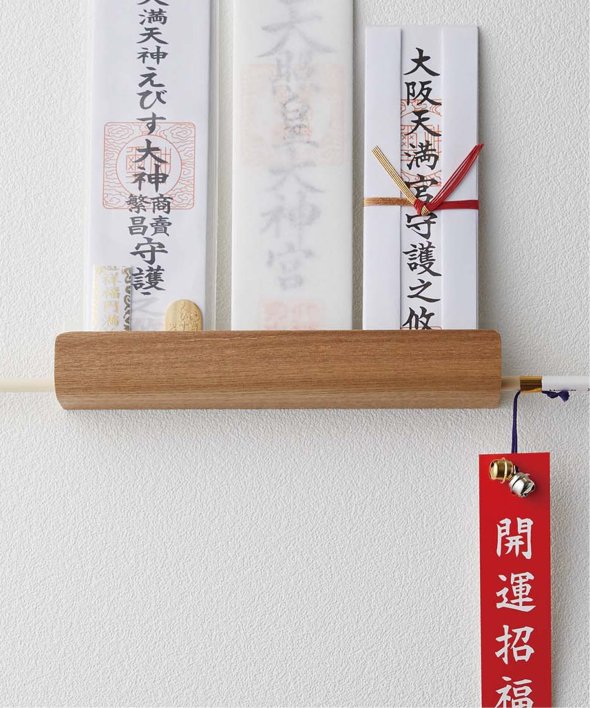 満天神えびす大神商賣繁昌守護之攸
天照皇大神宮
大阪天満宮守護之攸
開運招福